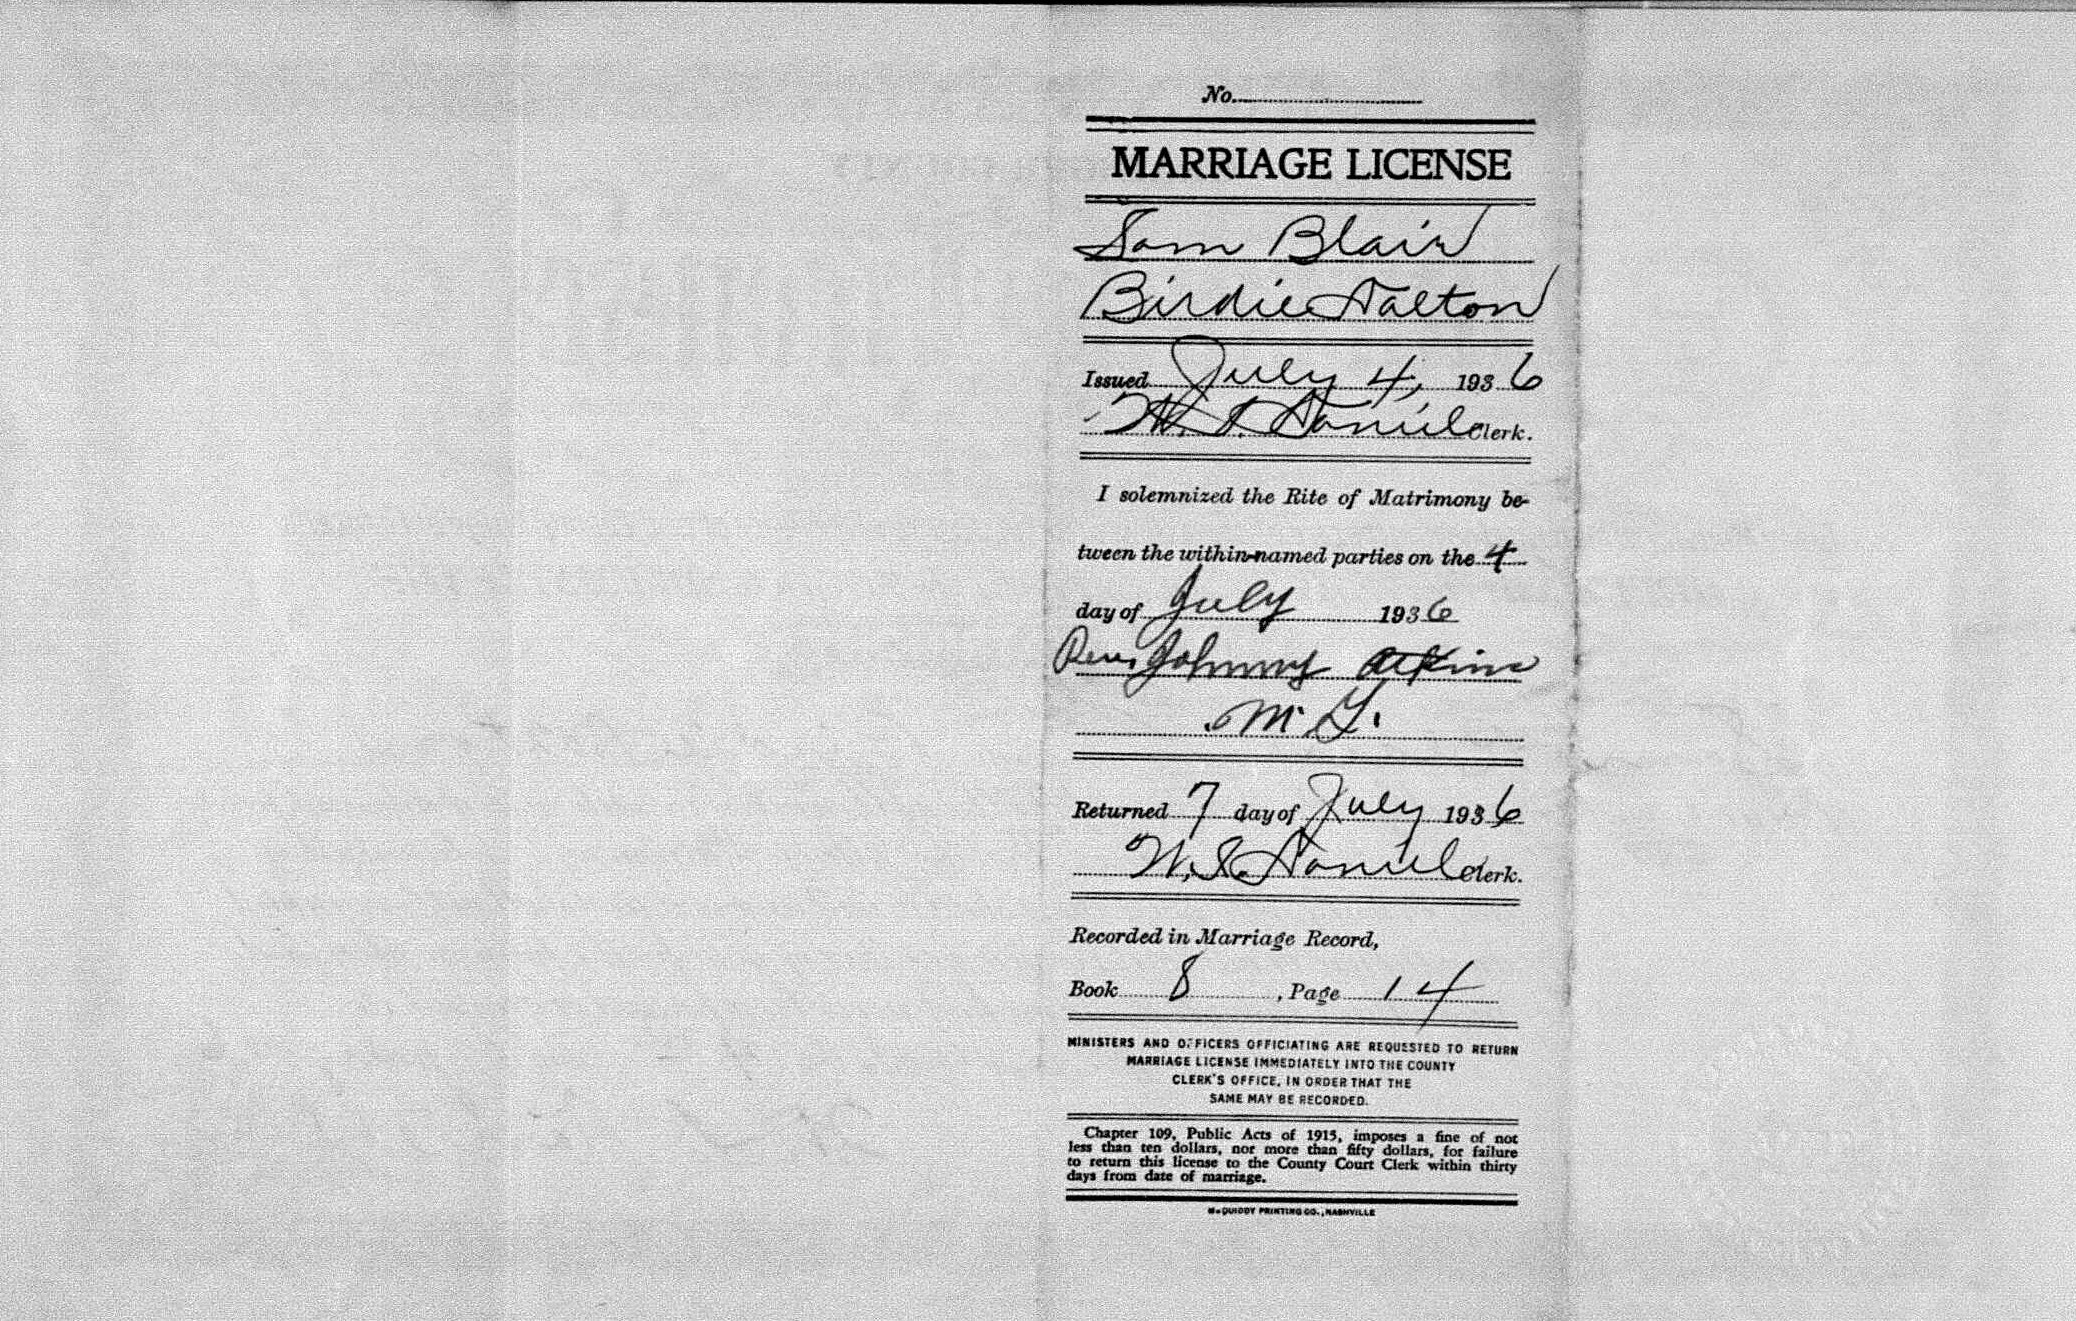 No.
MARRIAGE LICENSE
Sam Blair
Birdie Dalton
Issued July 4, 1936
W. S. Daniel Clerk.
I solemnized the Rite of Matrimony be-
tween the within-named parties on the 4
day of July 1936
Rev. Johnny Atkins
M. G.
Returned 7 day of July 1936
W. S. Daniel Clerk.
Recorded in Marriage Record,
Book 8, Page 14
MINISTERS AND OFFICERS OFFICIATING ARE REQUESTED TO RETURN
MARRIAGE LICENSE IMMEDIATELY INTO THE COUNTY
CLERK'S OFFICE, IN ORDER THAT THE
SAME MAY BE RECORDED.
Chapter 109, Public Acts of 1915, imposes a fine of not
less than ten dollars, nor more than fifty dollars, for failure
to return this license to the County Court Clerk within thirty
days from date of marriage.
McQUIDDY PRINTING CO., NASHVILLE